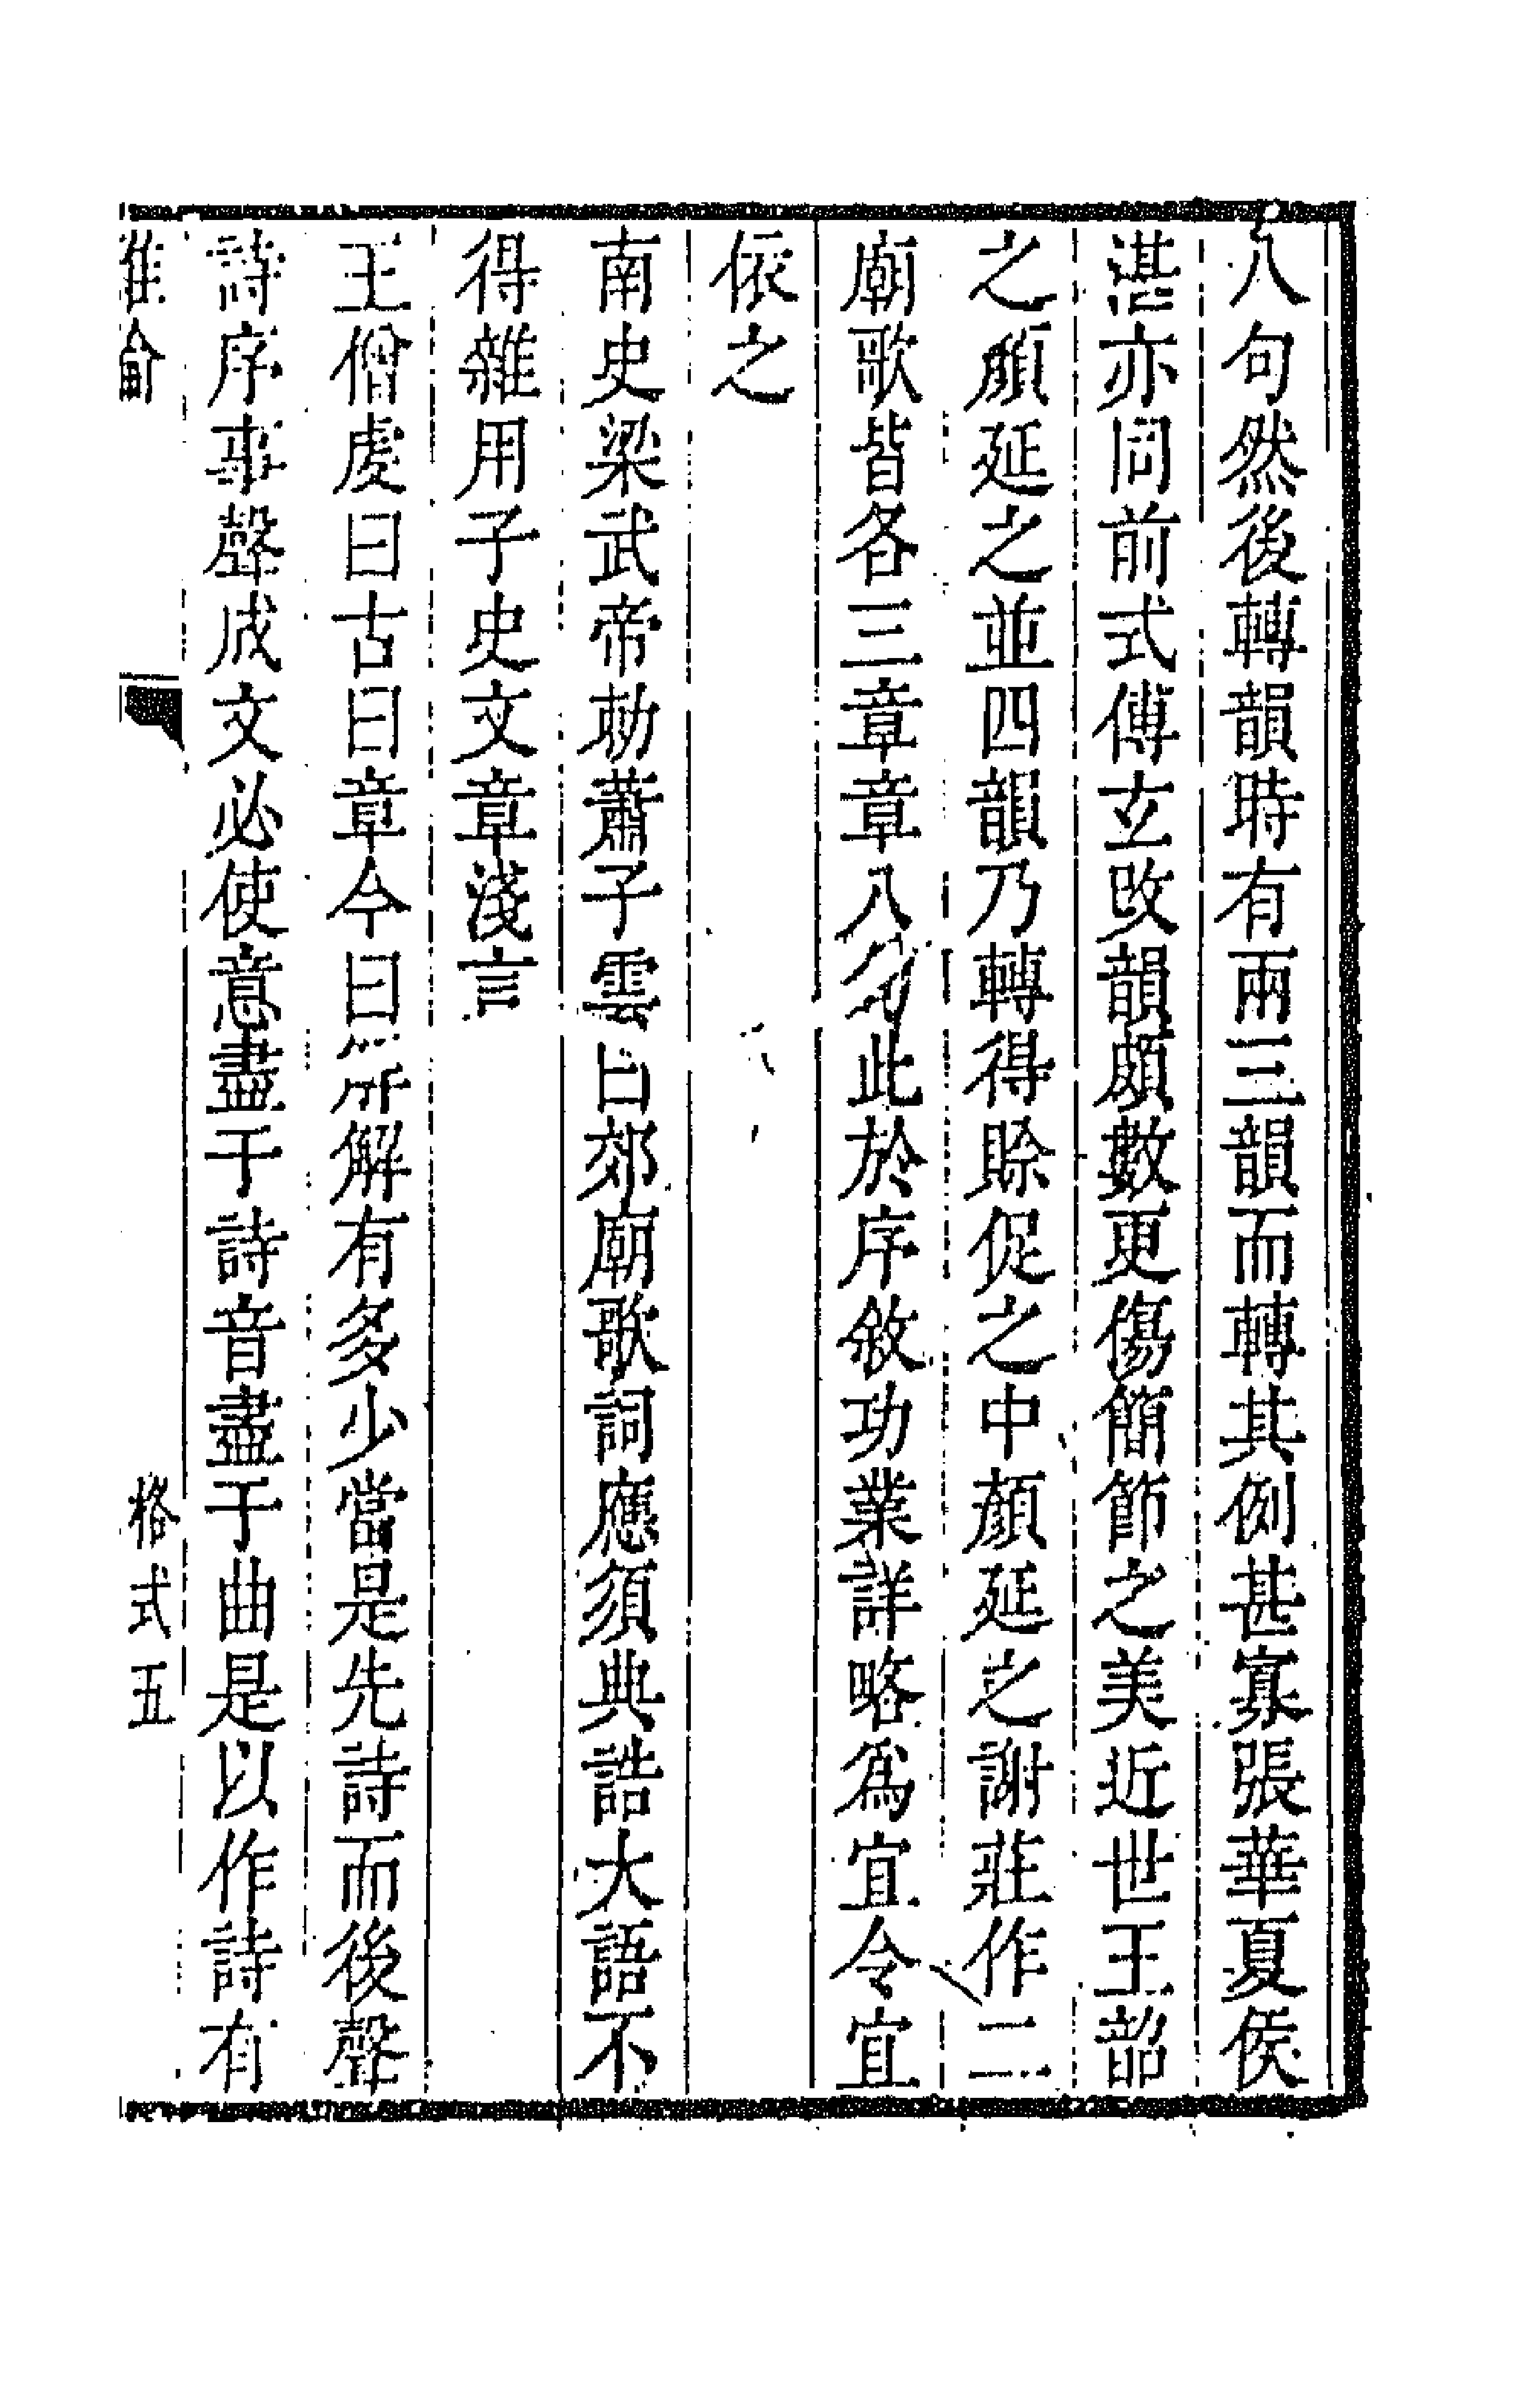 八句然後轉韻時有兩三韻而轉其例甚寡張華夏侯
湛亦同前式傅玄改韻頗數更傷簡節之美近世王韶
之顏延之並四韻乃轉得賒促之中顏延之謝莊作二
廟歌皆各三章章八句此於序敘功業詳略爲宜令宜
依之
南史梁武帝勑蕭子雲曰郊廟歌詞應須典誥大語不
得雜用子史文章淺言
王僧虔曰古曰章今曰解解有多少當是先詩而後聲
詩序事聲成文必使意盡于詩音盡于曲是以作詩有
格式五